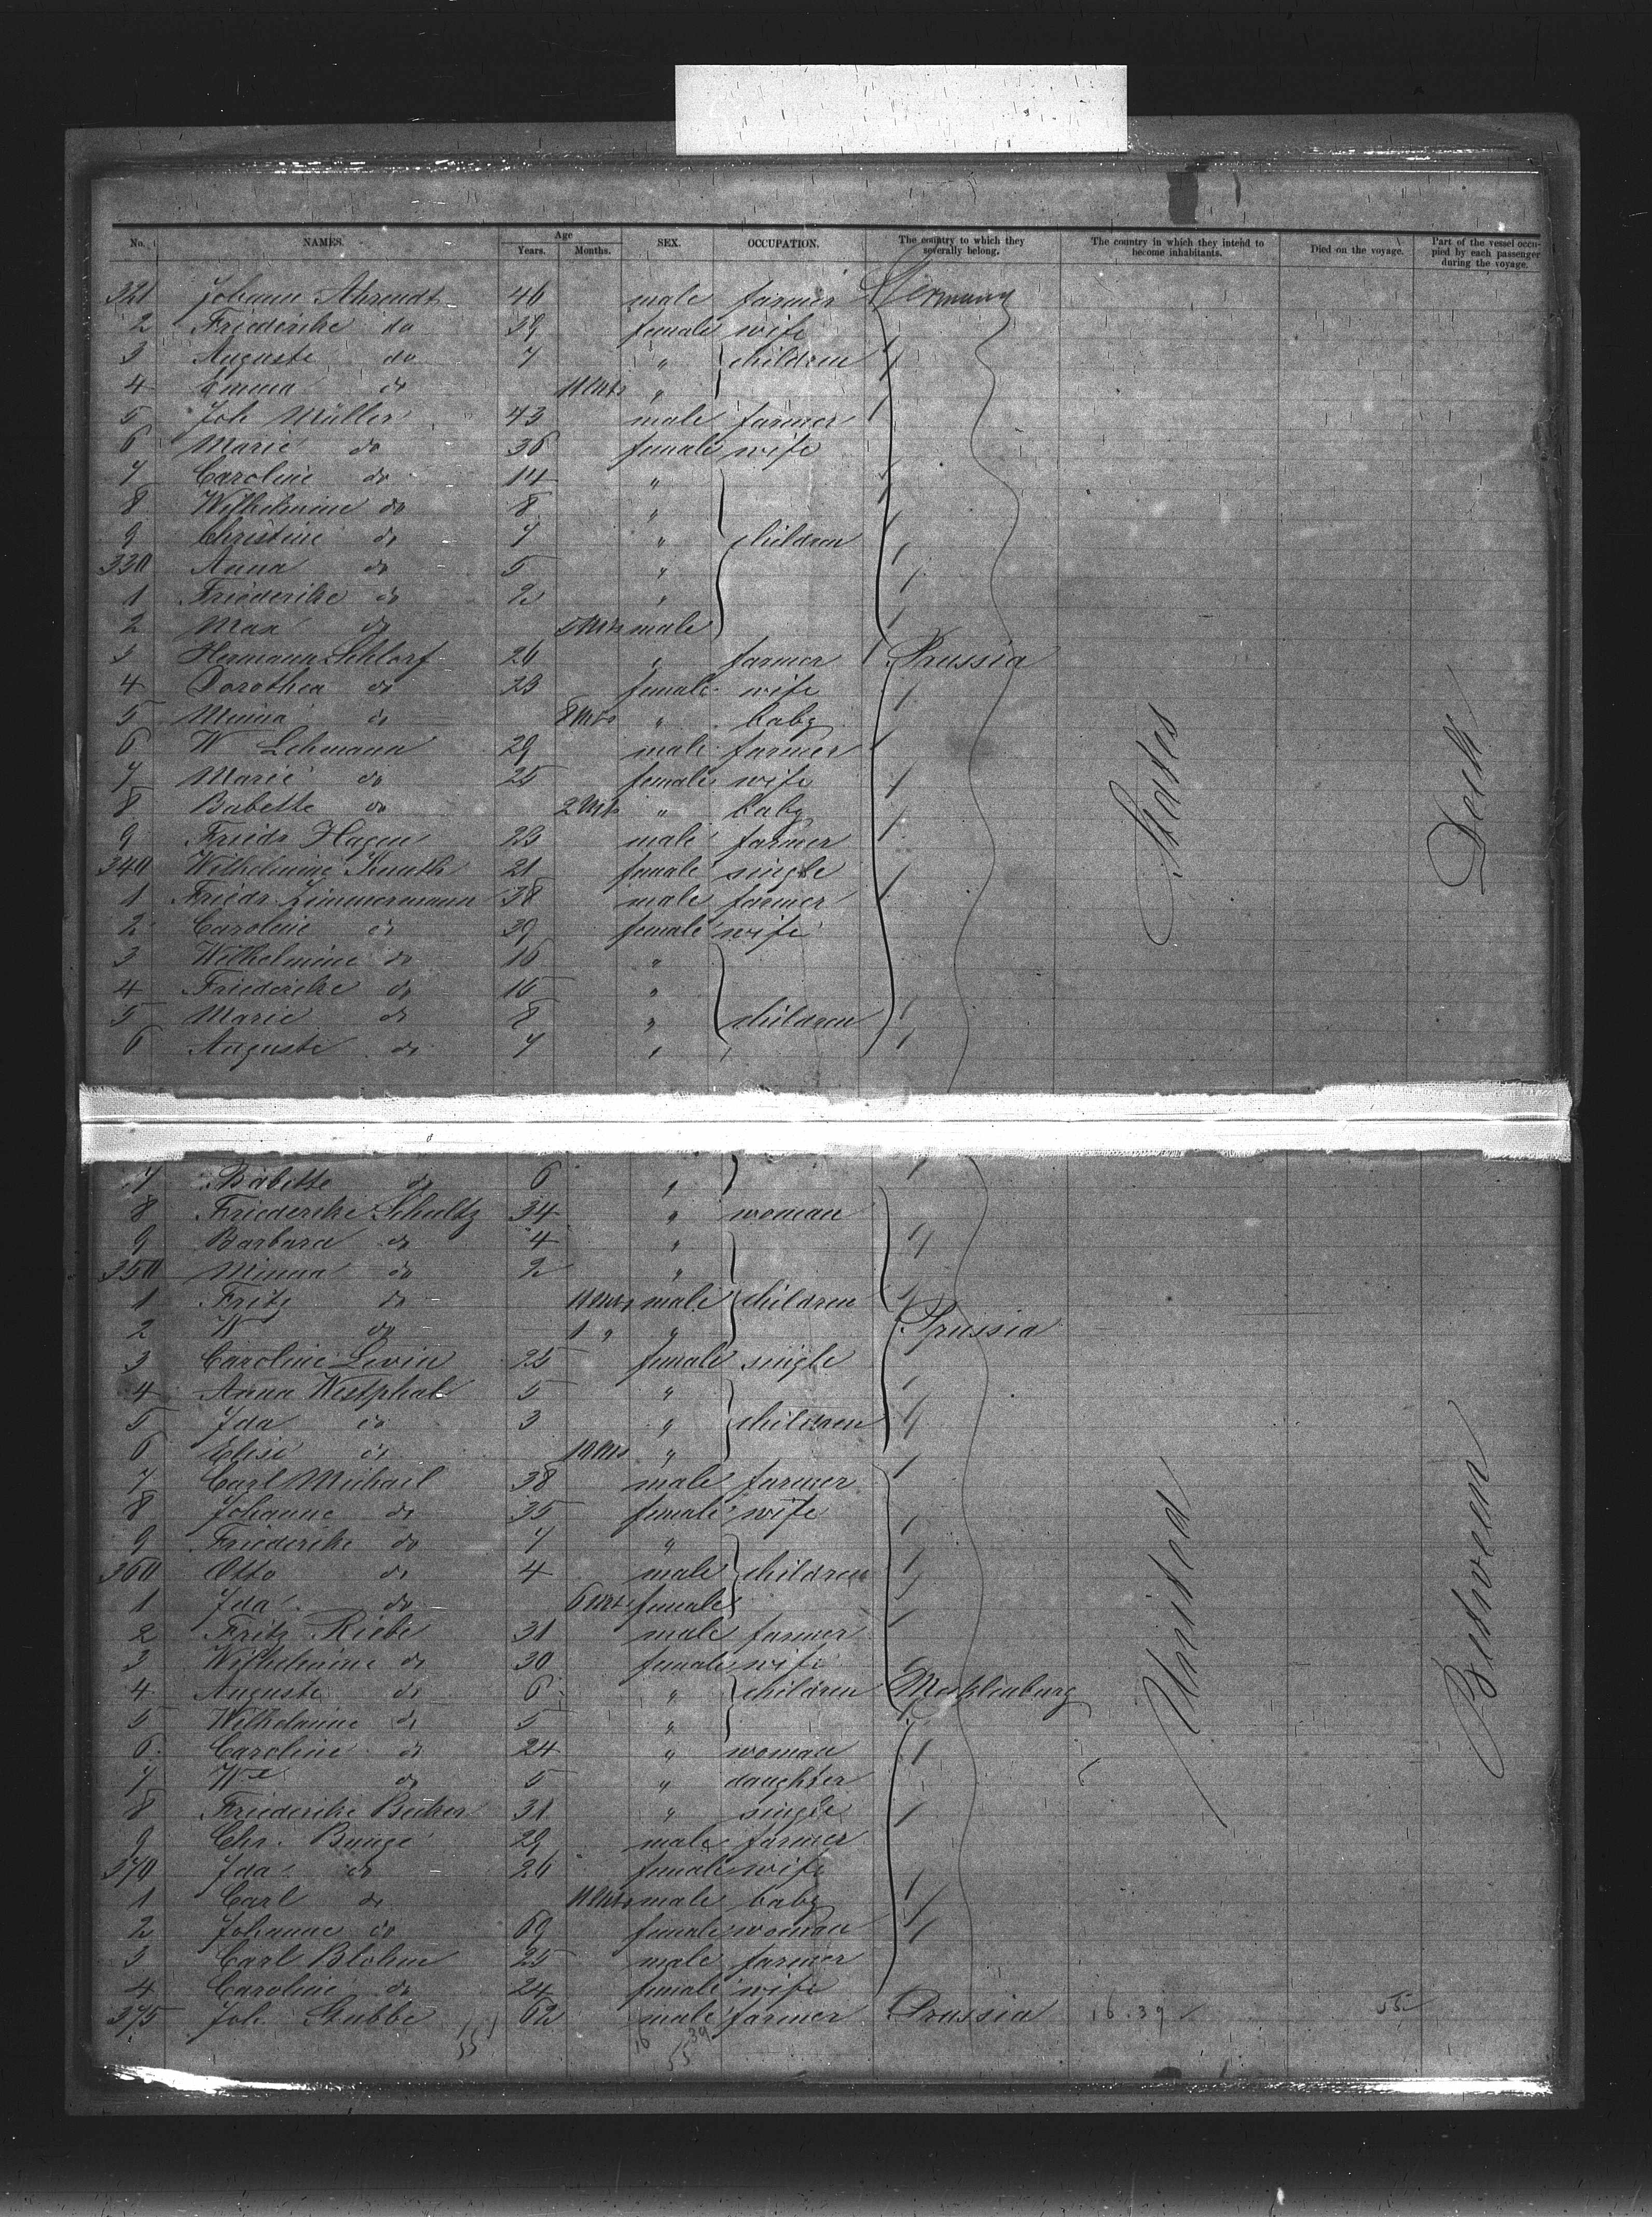 No. NAMES. Age Years. Months. SEX. OCCUPATION. The country to which they severally belong. The country in which they intend to become inhabitants. Died on the voyage. Part of the vessel occupied by each passenger during the voyage.
321 Johann Ahrendt 46 male farmer Germany
2 Friederike do 39 female wife
3 Auguste do 7 " children
4 Emma do 11 Mts "
5 Joh Müller 43 male farmer
6 Marie do 36 female wife
7 Caroline do 14 "
8 Wilhelmine do 8 "
9 Christine do 7 " children
330 Anna do 5 "
1 Friederike do 2 "
2 Max do 5 Mts male
3 Hermann Schlorf 26 " farmer Prussia
4 Dorothea do 23 female wife
5 Minna do 8 Mts " baby
6 W Lehmann 29 male farmer
7 Marie do 25 female wife
8 Babette do 2 Mts " baby
9 Friedr Hagen 23 male farmer
340 Wilhelmine Knuth 21 female single
1 Friedr Zimmermann 38 male farmer
2 Caroline do 39 female wife
3 Wilhelmine do 16 "
4 Friederike do 15 "
5 Marie do 8 " children
6 Auguste do 7 "
States
Deck
7 Babette do 6 "
8 Friederike Schultz 34 " woman
9 Barbara do 4 "
350 Minna do 2 "
1 Fritz do 11 Mts male children
2 W do 1 " " Prussia
3 Caroline Levin 25 female single
4 Anna Westphal 5 "
5 Ida do 3 " children
6 Elise do 10 Mts "
7 Carl Michael 38 male farmer
8 Johanne do 35 female wife
9 Friederike do 7 "
360 Otto do 4 male children
1 Ida do 6 Mts female
2 Fritz Riebe 31 male farmer
3 Wilhelmine do 30 female wife
4 Auguste do 6 " children Mecklenburg
5 Wilhelmine do 5 "
6 Caroline do 24 " woman
7 We do 5 " daughter
8 Friederike Becker 31 " single
9 Chr. Bunge 29 male farmer
370 Ida do 26 female wife
1 Carl do 11 Mts male baby
2 Johanne do 69 female woman
3 Carl Blohm 25 male farmer
4 Caroline do 24 female wife
375 Joh. Stubbe 62 male farmer Prussia 16.39 55
United
Between
55 16 39
55